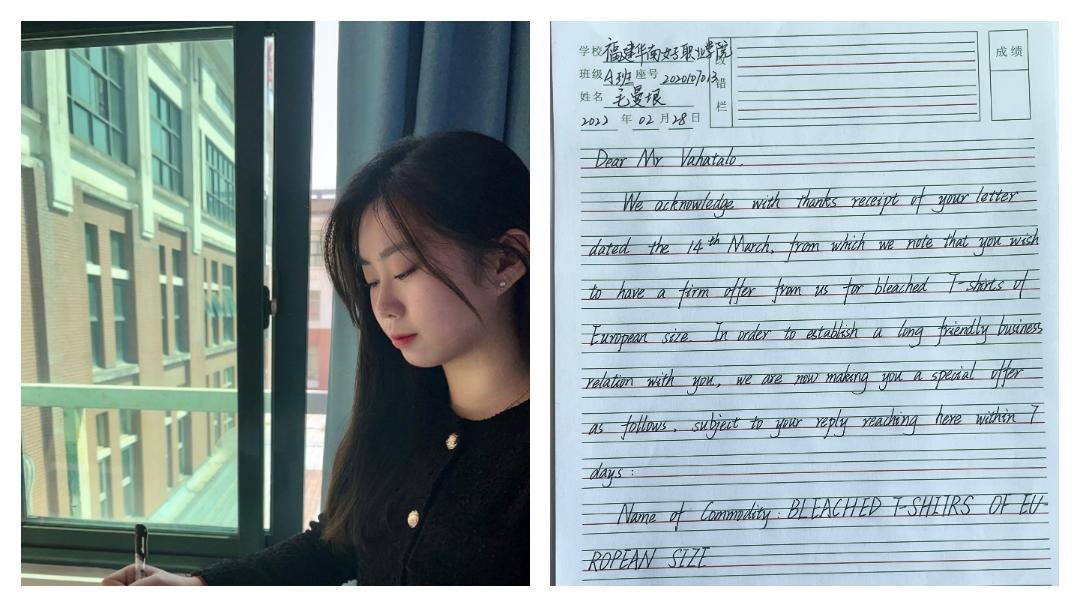 学校 福建华南女子职业学院
班级 A班 座号 2020107013
姓名 毛曼垠
2022 年 02 月 28 日
改错栏
成绩
Dear Mr. Vahatalo.
We acknowledge with thanks receipt of your letter
dated the 14th March, from which we note that you wish
to have a firm offer from us for bleached T-shirts of
European size. In order to establish a long friendly business
relation with you, we are now making you a special offer
as follows, subject to your reply reaching here within 7
days:
Name of Commodity: BLEACHED T-SHIIRS OF EU-
ROPEAN SIZE